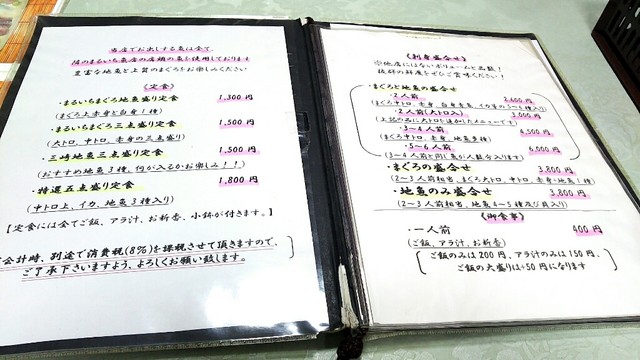 当店でお出しする魚は全て、
隣のまるいち魚店の店頭の魚を使用しております
豊富な地魚と上質のまぐろをお楽しみください
《定食》
・まるいちまぐろ地魚盛り定食 1,300円
(まぐろ上赤身と白身1種)
・まるいちまぐろ三点盛り定食 1,500円
(大トロ、中トロ、赤身の三点盛り)
・三崎地魚三点盛り定食 1,500円
(おすすめ地魚3種、何が入るかお楽しみ!!)
・特選五点盛り定食 1,800円
(中トロ上、イカ、地魚3種入り)
【定食には全てご飯、アラ汁、お新香、小鉢が付きます。】
会計時、別途で消費税(8%)を課税させて頂きますので、
ご了承下さいますよう、よろしくお願い致します。
《刺身盛合せ》
※他店にはないボリュームと品数!
抜群の鮮度をぜひご賞味ください!
・まぐろと地魚の盛合せ
・2人前 2,600円
(まぐろ中トロ、赤身、白身魚、イカ等の5~6種入り)
・2人前(大トロ入)
(上記の品に大トロを追加したメニューです)
・3~4人前 4,500円
(まぐろ中トロ、赤身、地魚多種)
・5~6人前 6,000円
(3~4人前と同じ魚が人数分入ります)
・まぐろの盛合せ 3,800円
(2~3人前相当、まぐろ大トロ、中トロ、赤身+地魚1種)
・地魚のみ盛合せ 3,800円
(2~3人前相当、地魚4~5種及び貝入り)
《御食事》
・一人前 400円
(ご飯、アラ汁、お新香)
ご飯のみは200円、アラ汁のみは150円、
ご飯の大盛りは+50円になります